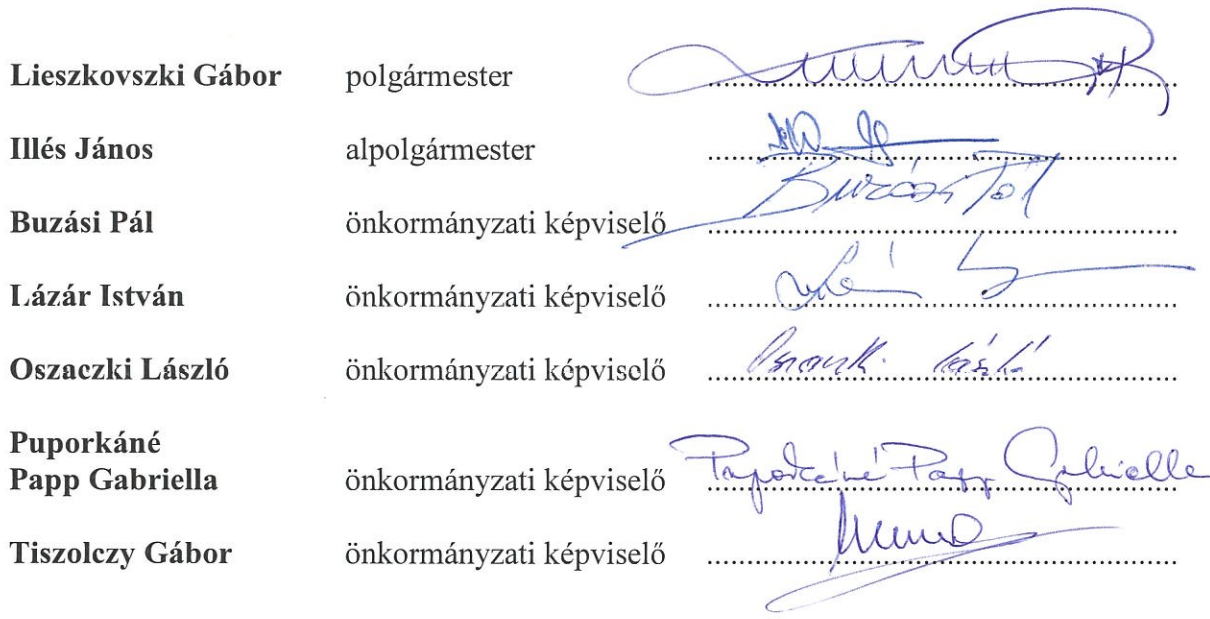 Lieszkovszki Gábor polgármester
Illés János alpolgármester
Buzási Pál önkormányzati képviselő Buzási Pál
Lázár István önkormányzati képviselő
Oszaczki László önkormányzati képviselő László
Puporkáné
Papp Gabriella önkormányzati képviselő Puporkáné Papp Gabriella
Tiszolczy Gábor önkormányzati képviselő